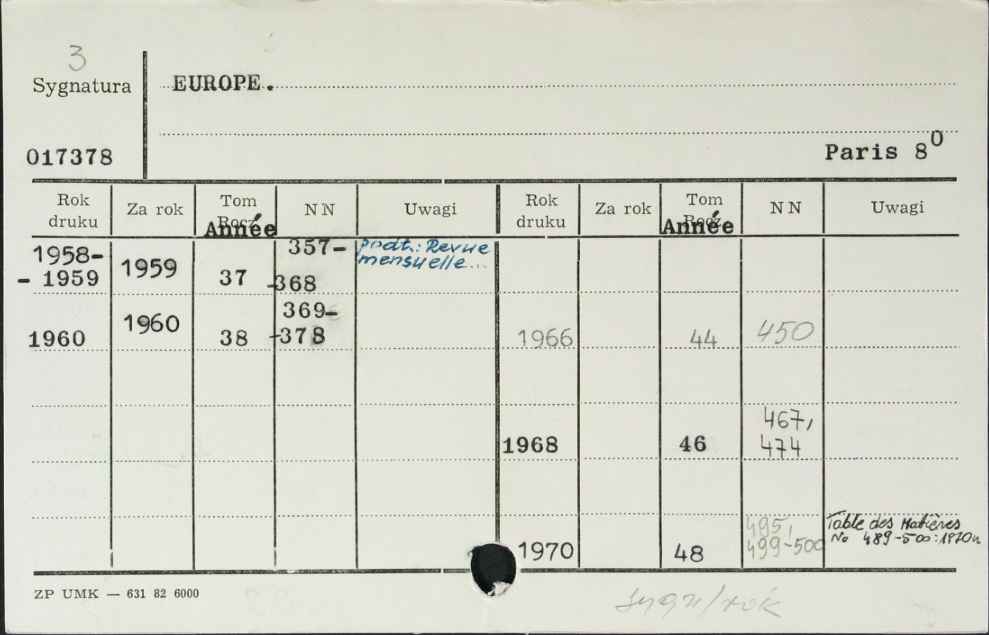 3
Sygnatura
EUROPE.
017378
Paris 8⁰
Rok druku Za rok Tom Rocz. Année NN Uwagi Rok druku Za rok Tom Rocz. Année NN Uwagi
1958-
- 1959 1959 37 357-
-368 podt.: Revue
mensuelle...
1960 1960 38 369-
-378
1966 44 450
1968 46 467,
474
1970 48 495,
499-500 Table des Matières
No 489-500: 1970 r.
ZP UMK — 631 82 6000
sygn/rok